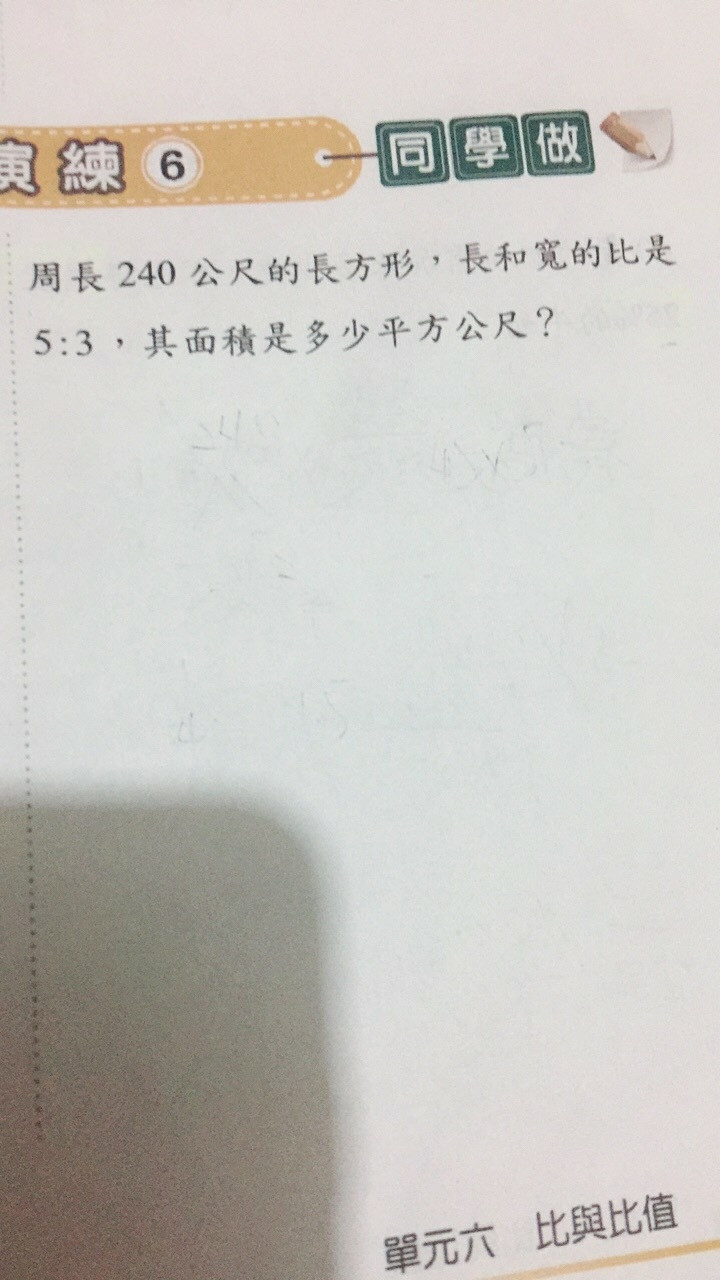 練 6 同學做
周長 240 公尺的長方形，長和寬的比是
5:3，其面積是多少平方公尺？
單元六 比與比值